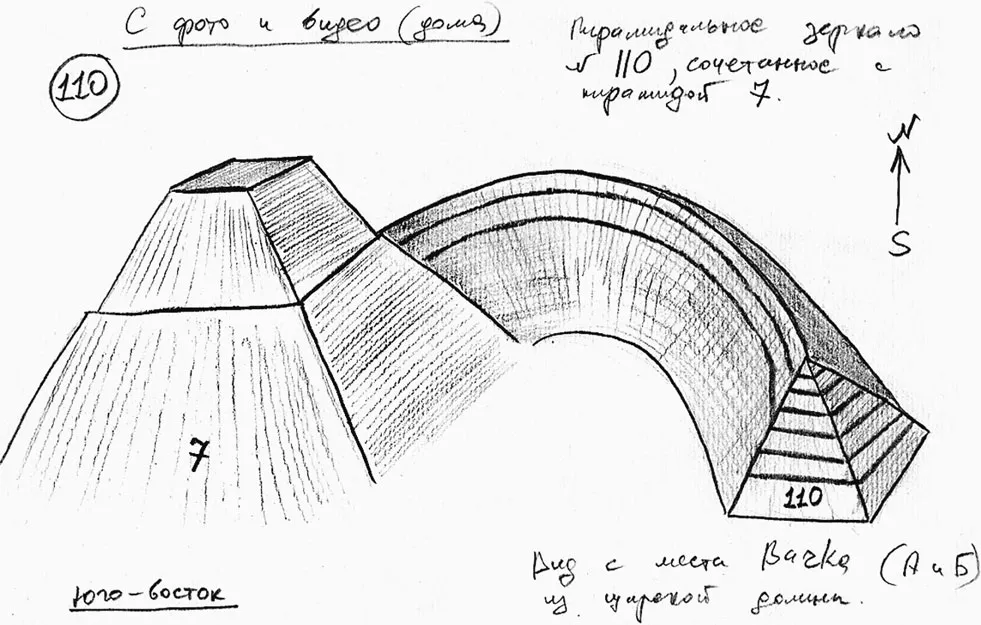 С фото и видео (дома)
110
Пирамидальное зеркало
N 110, сочетанное с
пирамидой 7.
N
S
7
110
Вид с места Вачка (А и Б)
из широкой долины.
юго-восток